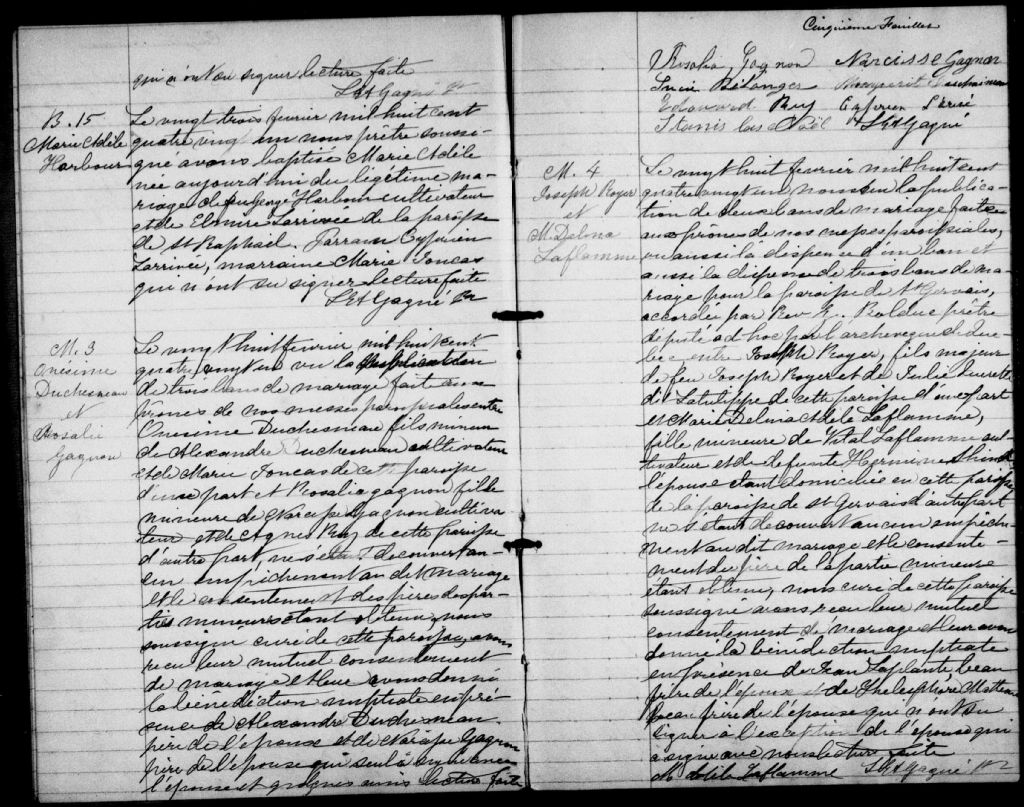 qui n'ont su signer lecture faite
LEt Gagné Ptr
B. 15
Marie Adèle
Harbour
Le vingt trois février mil huit cent
quatre vingt un nous prêtre soussi-
gné avons baptisé Marie Adèle
née aujourd'hui du légitime ma-
riage de George Harbour cultivateur
et de Elmire Larrivée de la paroisse
de St Raphael, Parrain Cyprien
Larrivée, marraine Marie Joncas
qui n ont su signer Lecture faite
LEt Gagné Ptr
M. 3
Onésime
Duchesneau
et
Rosalie
Gagnon
Le vingt huit février mil huit cent
quatre vingt un vu la publication
de trois bans de mariage fait aux
prônes de nos messes paroissiales entre
Onésime Duchesneau fils mineur
de Alexandre Duchesneau cultivateur
et de Marie Joncas de cette paroisse
d'une part et Rosalie Gagnon fille
mineure de Narcisse Gagnon cultiva-
teur et de Agnes Roy de cette paroisse
d'autre part, ne s'étant découvert au-
cun empêchement au dit mariage
et le consentement des pères des par-
ties mineurs étant obtenu, nous
soussigné curé de cette paroisse, avons
recu leur mutuel consentement
de mariage et leur avons donné
la bénédiction nuptiale en pré-
sence de Alexandre Duchesneau
père de l'époux et de Narcisse Gagnon
père de l'épouse qui seul a signé avec
l'épouse et quelques amis lecture faite
Cinquième Feuillet
Rosalie Gagnon Narcisse Gagnon
Lucie Bélanger
Edouard Roy
Stanislas Noël LEt Gagné
M. 4
Joseph Royer
et
M. Delna
Laflamme
Le vingt huit février mil huit cent
quatre vingt un, nous vu la publica-
tion de deux bans de mariage faite
au prône de nos messes paroissiales,
vu aussi la dispense d'un ban et
aussi la dispense de trois bans de ma-
riage pour la paroisse de St Gervais,
accordée par Rev. Bolduc prêtre
député ad hoc par l'archevêque de Qué
bec entre Joseph Royer, fils majeur
de feu Joseph Royer et de Julie
de Latulippe de cette paroisse d'une part
et Marie Delna Adèle Laflamme,
fille mineure de Vital Laflamme cul-
tivateur et de defunte Hermine
l'épouse étant domiciliée en cette paroisse
de la paroisse de St Gervais d'autre part
ne s'étant découvert aucun empêche-
ment au dit mariage et le consente-
ment du père de la partie mineure
étant obtenu, nous curé de cette paroisse
soussigné avons recu leur mutuel
consentement de mariage et leur avons
donné la bénédiction nuptiale
en présence de Jean Laplante, beau
frère de l'époux et de Thelesphore
beau frère de l'épouse qui n ont su
signer à l'exception de l'épouse qui
a signé avec nous lecture faite
M. Adèle Laflamme LEt Gagné Ptr